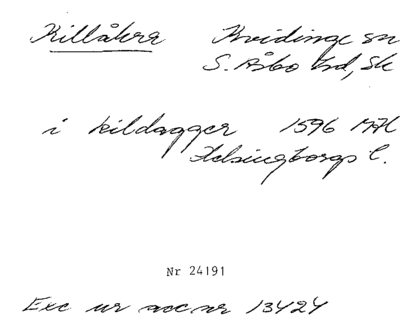 Killåkra Kvidinge sn
S. Åsbo hd, Sk
i kildagger 1596
Helsingborgs l.
Nr 24191
Exc ur acc nr 13424